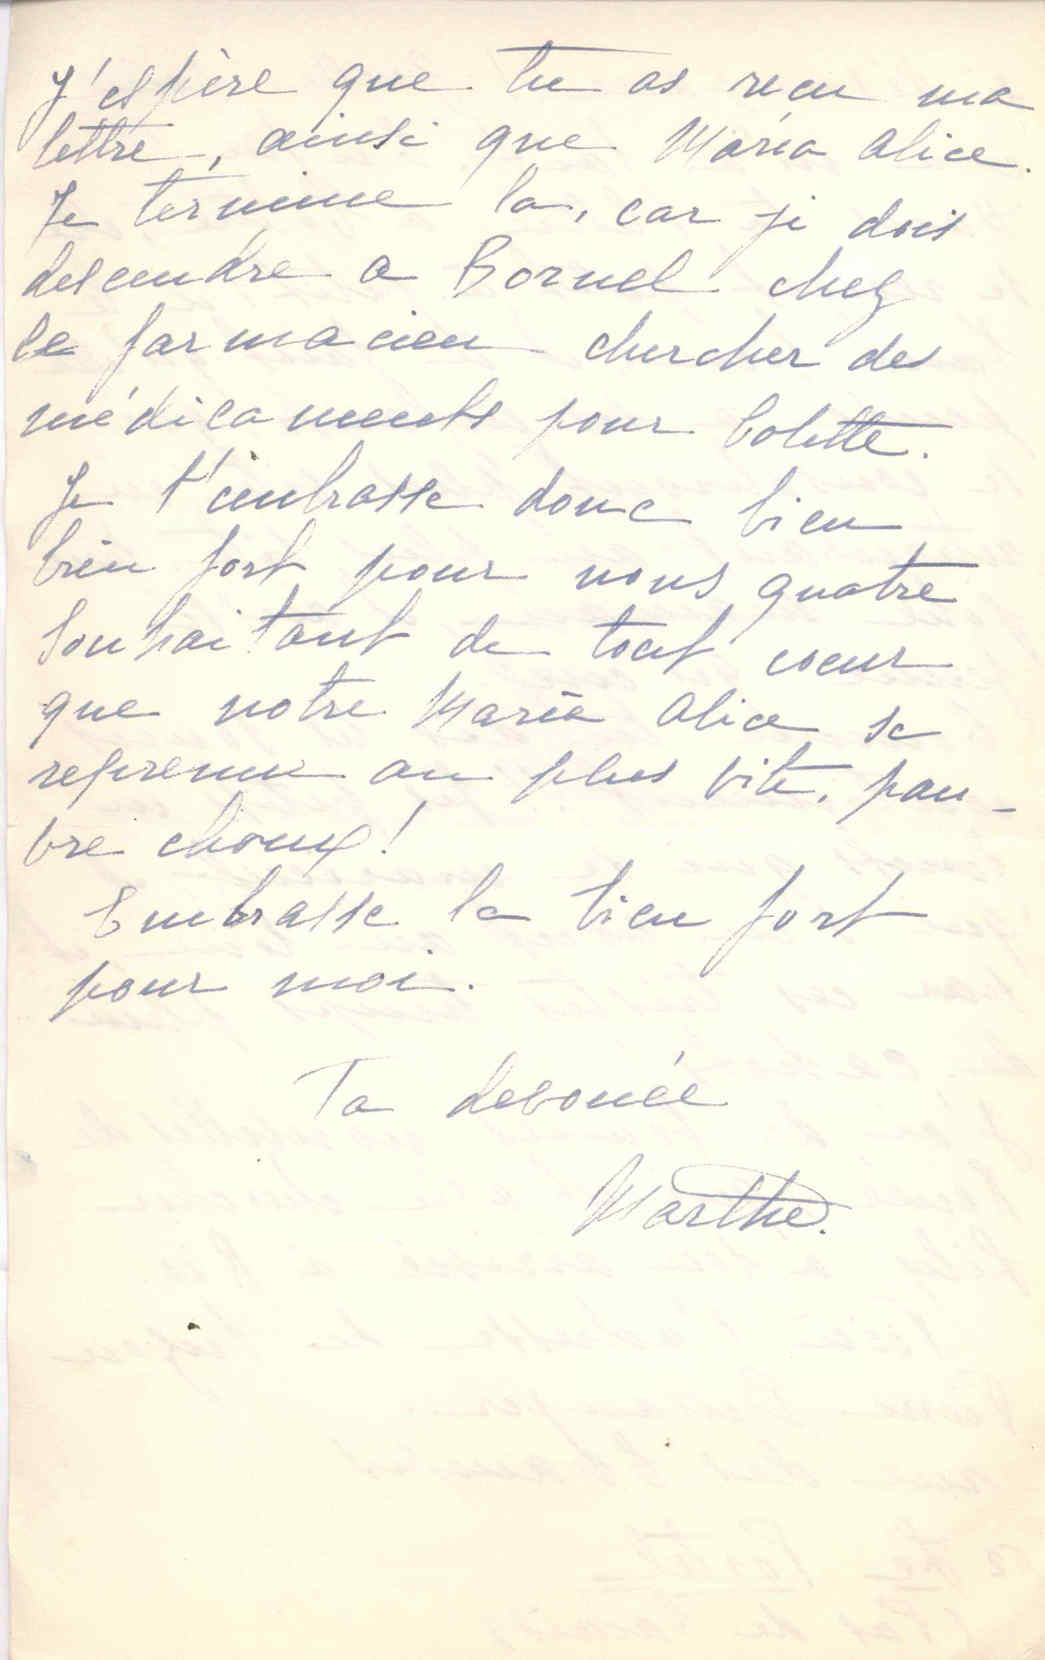 J'espère que tu as recu ma
lettre, ainsi que Maria Alice.
Je termine la, car je dois
descendre a Bornel chez
le farmacien chercher des
médicaments pour Colette.
Je t'embrasse donc bien
bien fort pour nous quatre
souhaitant de tout coeur
que notre Maria Alice se
reprenne au plus vite, pau-
vre choux!
Embrasse la bien fort
pour moi.
Ta devouée
Marthe.